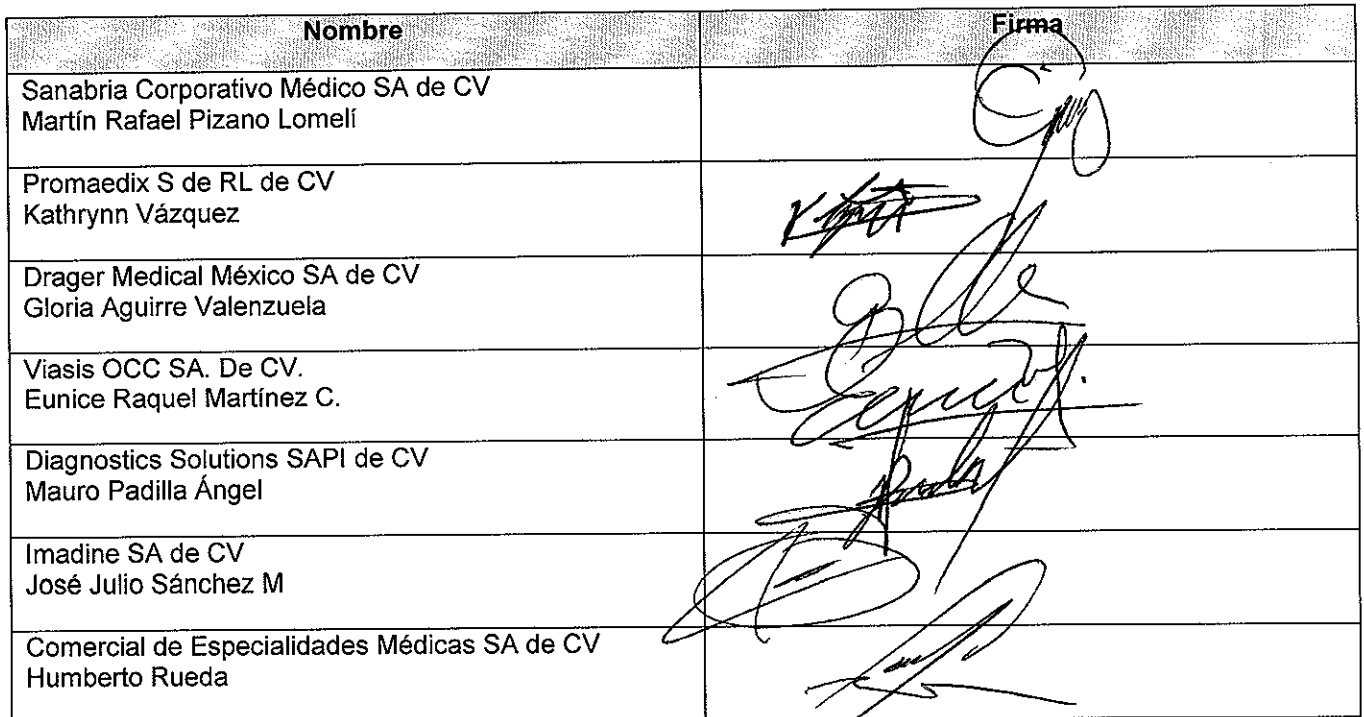 Nombre
Firma
Sanabria Corporativo Médico SA de CV
Martín Rafael Pizano Lomelí
Promaedix S de RL de CV
Kathrynn Vázquez
Drager Medical México SA de CV
Gloria Aguirre Valenzuela
Viasis OCC SA. De CV.
Eunice Raquel Martínez C.
Diagnostics Solutions SAPI de CV
Mauro Padilla Ángel
Imadine SA de CV
José Julio Sánchez M
Comercial de Especialidades Médicas SA de CV
Humberto Rueda